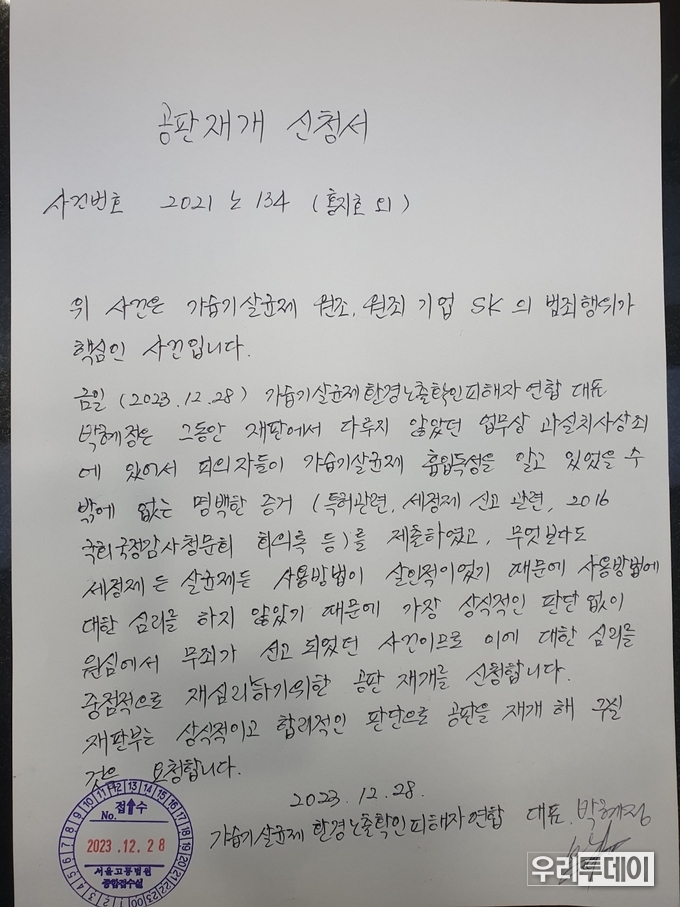 공판재개 신청서
사건번호 2021노134 (홍지호 외)
위 사건은 가습기살균제 원조, 원죄 기업 SK의 범죄행위가
핵심인 사건입니다.
금일 (2023.12.28) 가습기살균제환경노출확인피해자연합 대표
박혜정은 그동안 재판에서 다루지 않았던 업무상 과실치사상죄
에 있어서 피의자들이 가습기살균제 흡입독성을 알고 있었을 수
밖에 없는 명백한 증거 (특허관련, 세정제 신고 관련, 2016
국회국정감사청문회 회의록 등)를 제출하였고, 무엇보다도
세정제든 살균제든 사용방법이 살인적이었기 때문에 사용방법에
대한 심리를 하지 않았기 때문에 가장 상식적인 판단 없이
원심에서 무죄가 선고 되었던 사건이므로 이에 대한 심리를
중점적으로 재심리하기위한 공판 재개를 신청합니다.
재판부는 상식적이고 합리적인 판단으로 공판을 재개 해 주실
것은 요청합니다.
2023.12.28.
가습기살균제 환경노출확인피해자연합 대표 박혜정
No. 접수
2023.12.28
서울고등법원
종합접수실
우리투데이